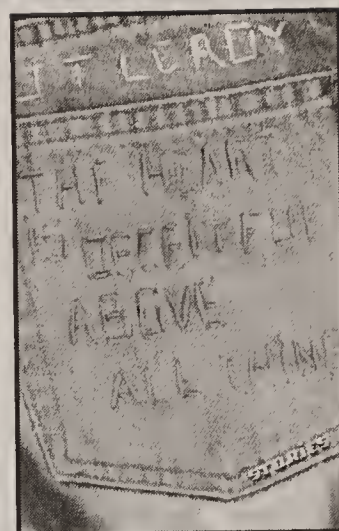 JT LEROY
THE HEART
IS DECEITFUL
ABOVE
ALL THINGS
STORIES